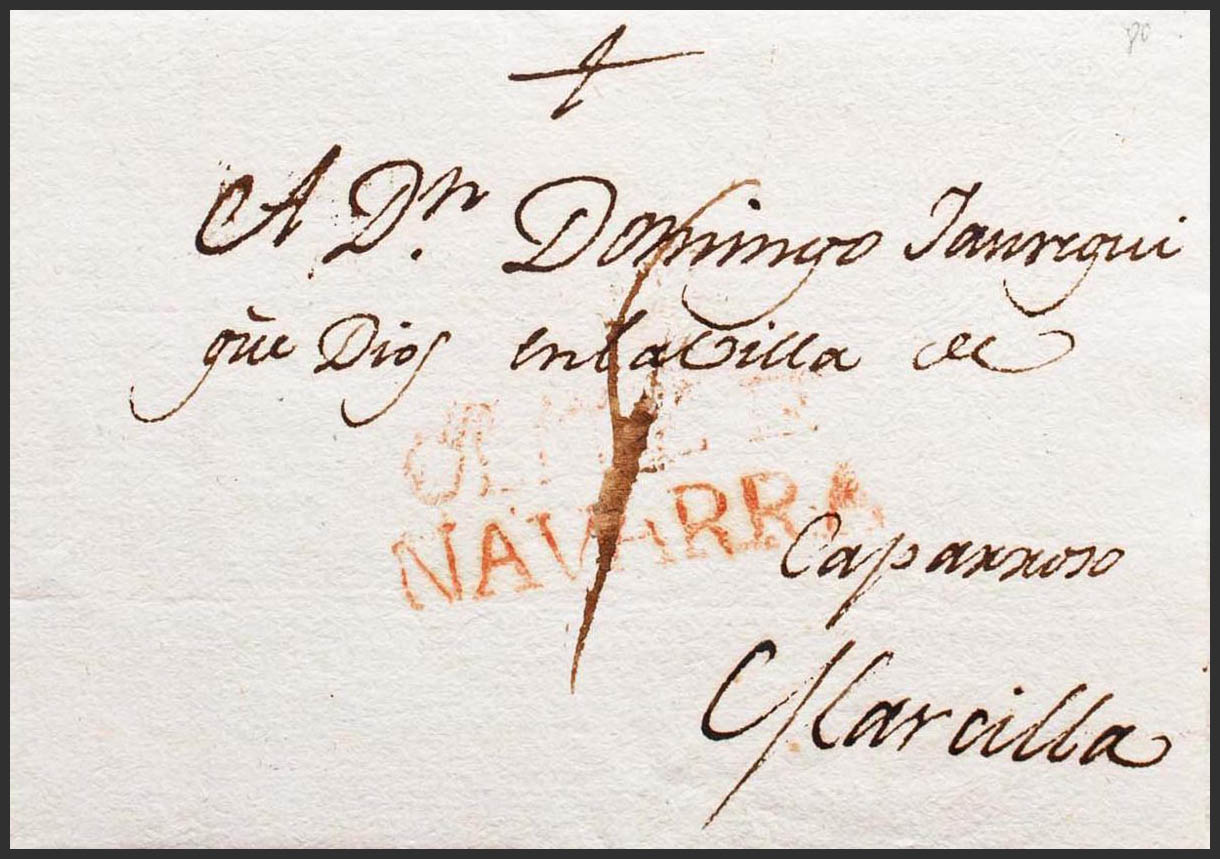 A Dn. Domingo Jauregui
gũe Dios en la Villa de
NAVARRA
Caparroso
Marcilla
80